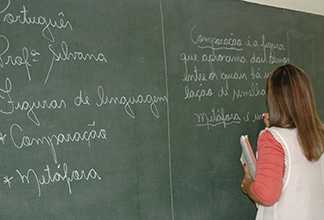 Português
Profª Silvana
Figuras de linguagem
* Comparação
* Metáfora
Comparação é a figura
que aproxima dois termos
entre os quais há
lação de
Metáfora é